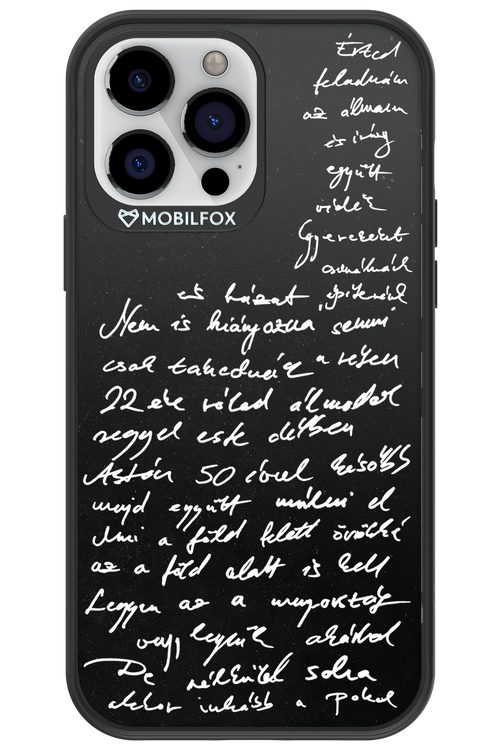 MOBILFOX
Érted
feladnám
az álmom
és irány
együtt
vidék
Gyerekeket
csinálnánk
és házat építenénk
Nem is hiányozna semmi
csak takednác a télen
22 éve rólad álmodok
reggel este délben
Aztán 50 évvel később
majd együtt múlni el
Ami a föld felett örökké
az a föld alatt is kell
Legyen az a mennyország
vagy legyünk akárhol
De nélküled soha
akkor inkább a Pokol